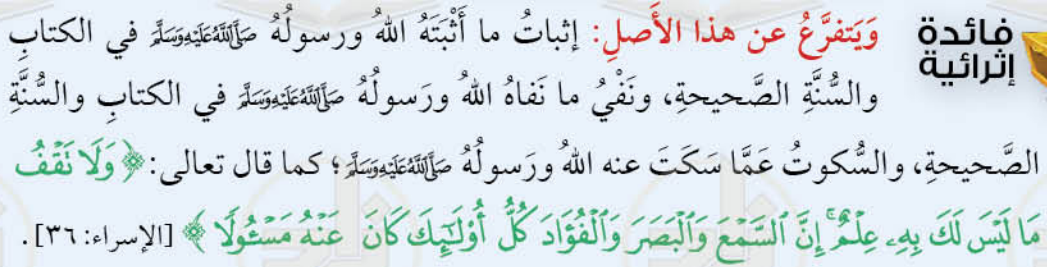 فائدة إثرائية
وَيَتفرَّعُ عن هذا الأَصلِ: إثباتُ ما أَثْبَتَهُ اللهُ ورسولُهُ صَلَّىٰللَّهُعَلَيْهِوَسَلَّمَ في الكتابِ
والسُّنَّةِ الصَّحيحةِ، ونَفْيُ ما نَفاهُ اللهُ ورَسولُهُ صَلَّىٰللَّهُعَلَيْهِوَسَلَّمَ في الكتابِ والسُّنَّةِ
الصَّحيحةِ، والسُّكوتُ عَمَّا سَكَتَ عنه اللهُ ورَسولُهُ صَلَّىٰللَّهُعَلَيْهِوَسَلَّمَ؛ كما قال تعالى: ﴿وَلَا تَقْفُ
مَا لَيْسَ لَكَ بِهِۦ عِلْمٌ ۚ إِنَّ ٱلسَّمْعَ وَٱلْبَصَرَ وَٱلْفُؤَادَ كُلُّ أُوْلَٰٓئِكَ كَانَ عَنْهُ مَسْـُٔولًا﴾ [الإسراء: ٣٦].